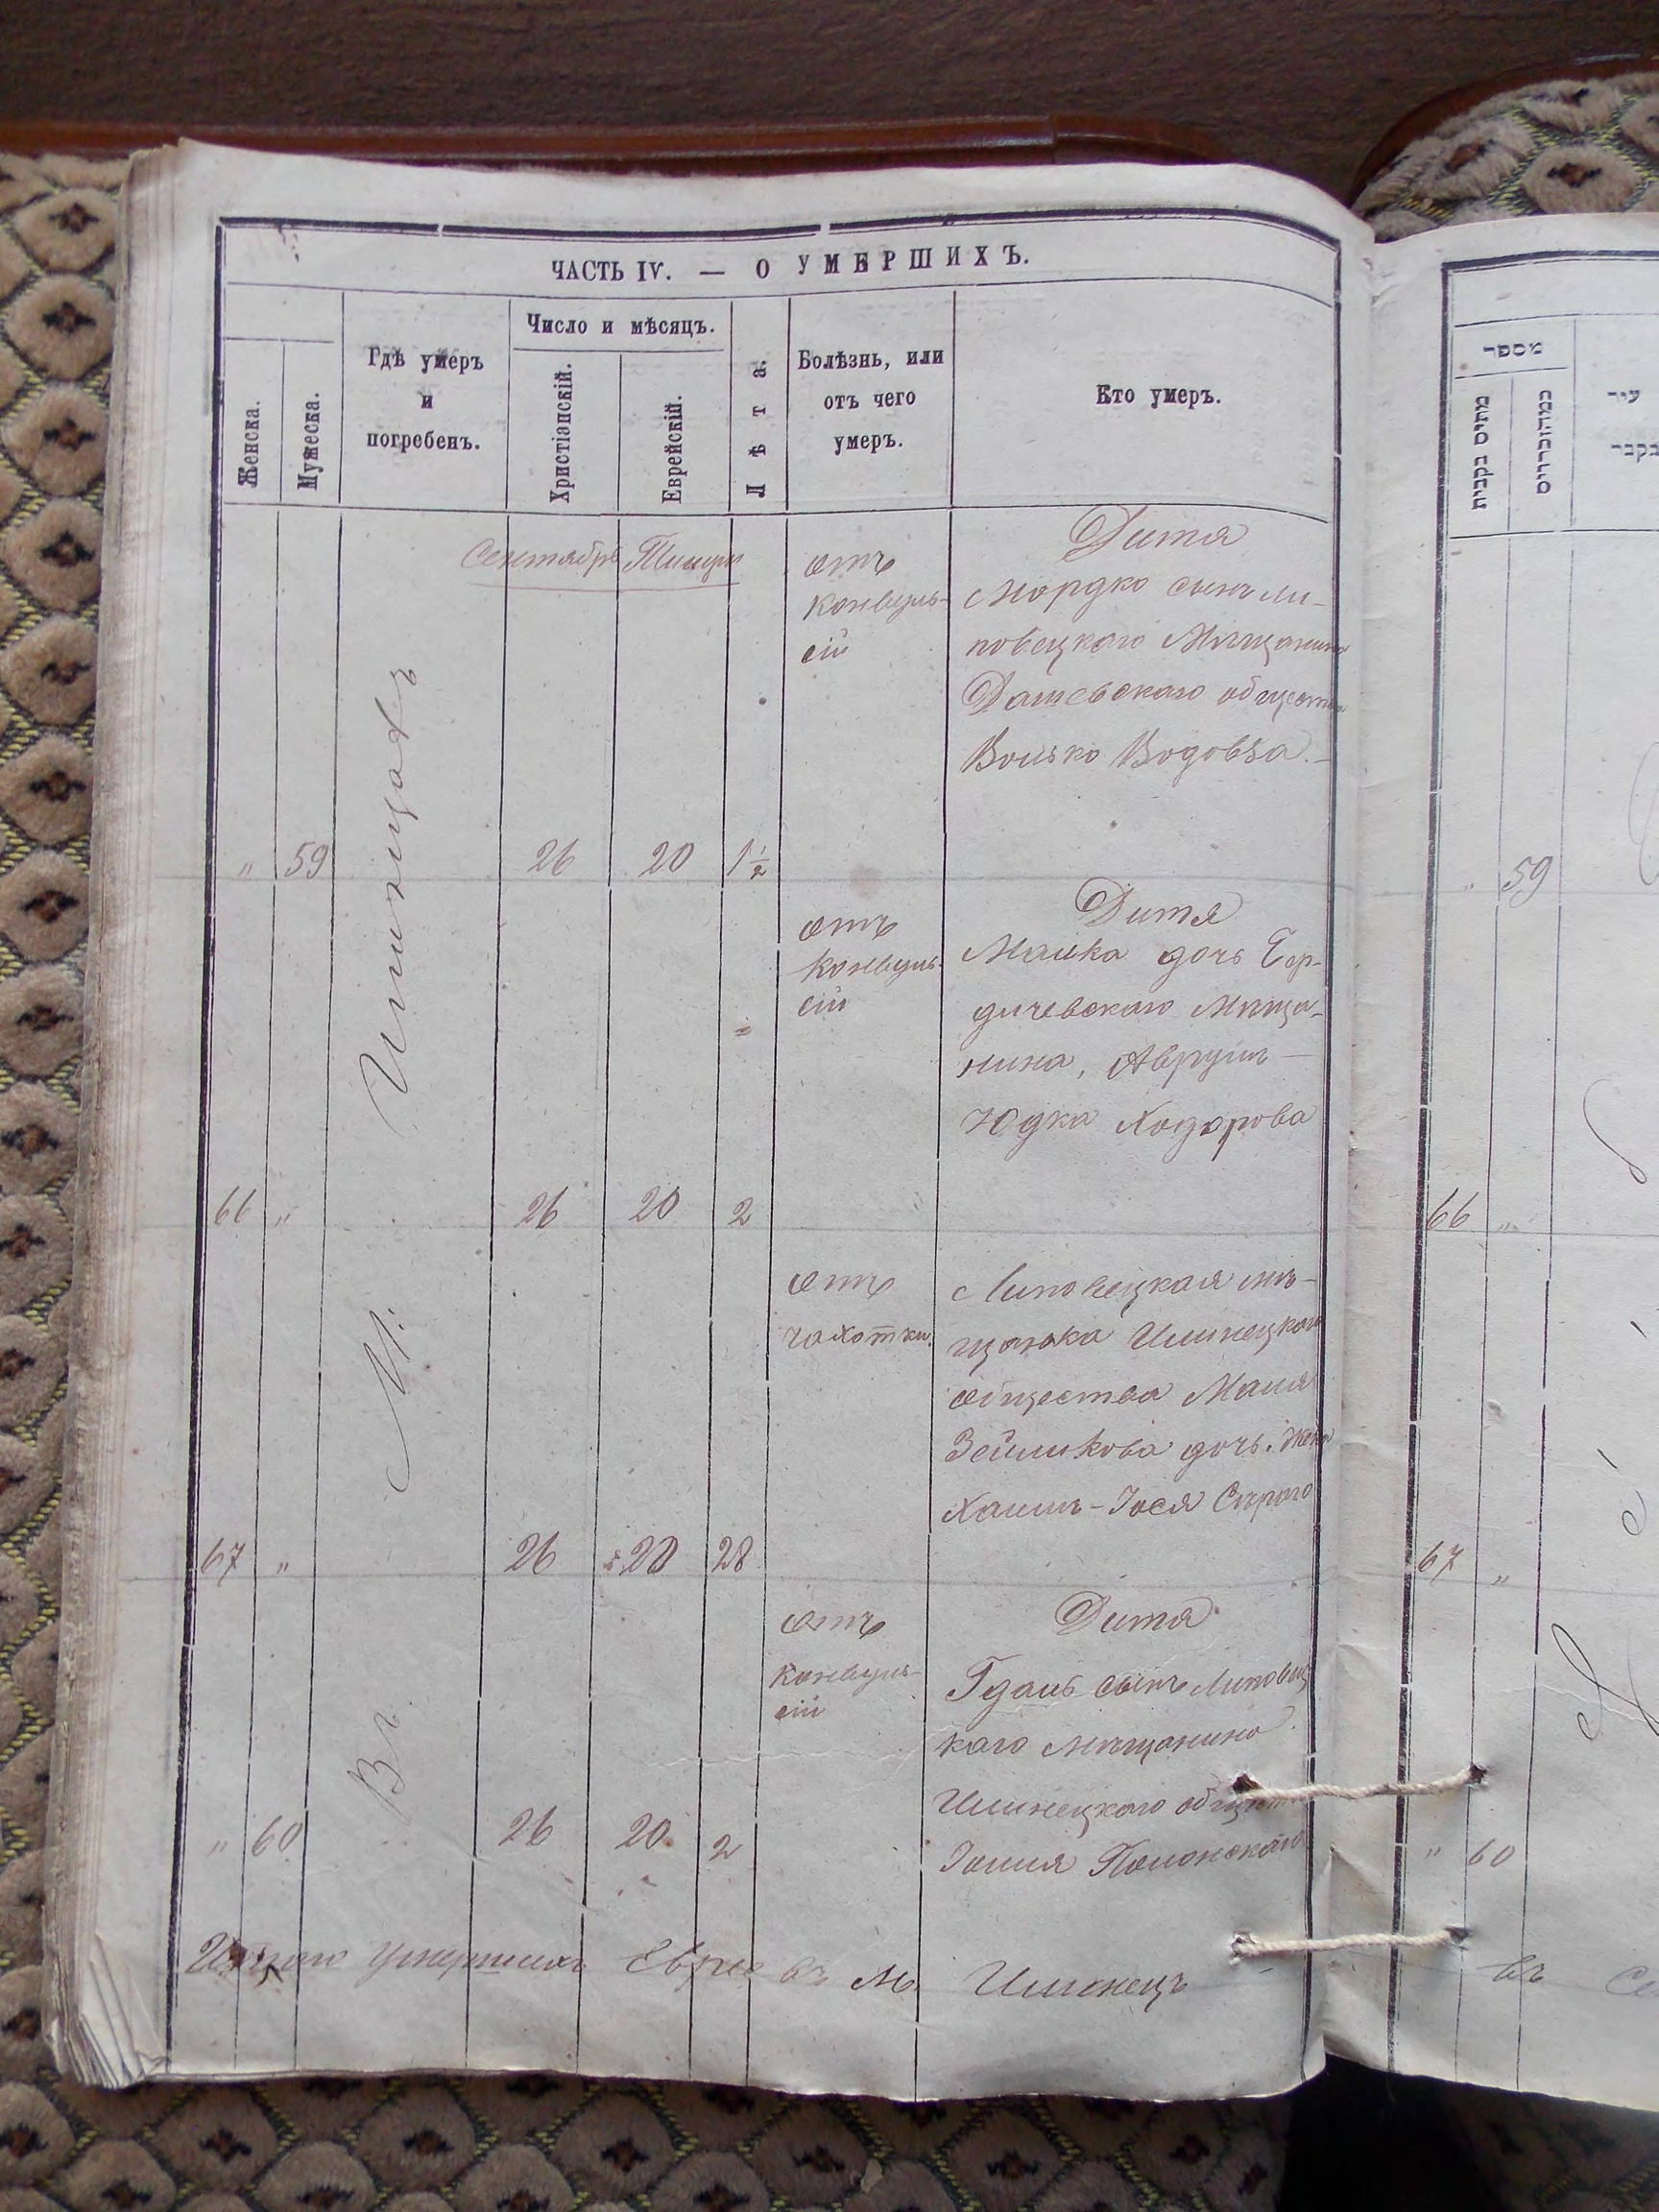 ЧАСТЬ IV. — О УМЕРШИХЪ.
Женска.
Мужеска.
Гдѣ умеръ
и
погребенъ.
Число и мѣсяцъ.
Христіанскій.
Еврейскій.
Лѣта.
Болѣзнь, или
отъ чего
умеръ.
Кто умеръ.
Сентября Тишри
Въ М: Илинцахъ
отъ
конвуль-
сій
Дитя
Мордко сынъ ли-
повецкаго Мѣщанина
Дашевскаго общества
Волько Водовѣа.
" 59 26 20 1 1/2
отъ
конвуль-
сій
Дитя
Малка дочь Бер-
дичевскаго Мѣща-
нина, Аврумъ-
Юдка Ходорова
66 " 26 20 2
отъ
чахотки.
Липовецкая мѣ-
щанка Илинецкаго
общества Маля
Зейликова дочь. жена
Хаимъ-Іося Сѣраго
67 " 26 20 28
отъ
конвуль-
сій
Дитя
Гдаль сынъ Липовец
каго мѣщанина
Илинецкаго общества
Іоиля Полонскаго
" 60 26 20 2
Итого умершихъ Еврее въ М. Илинецъ
מספר
עיר
" 59
66 "
67 "
" 60
въ